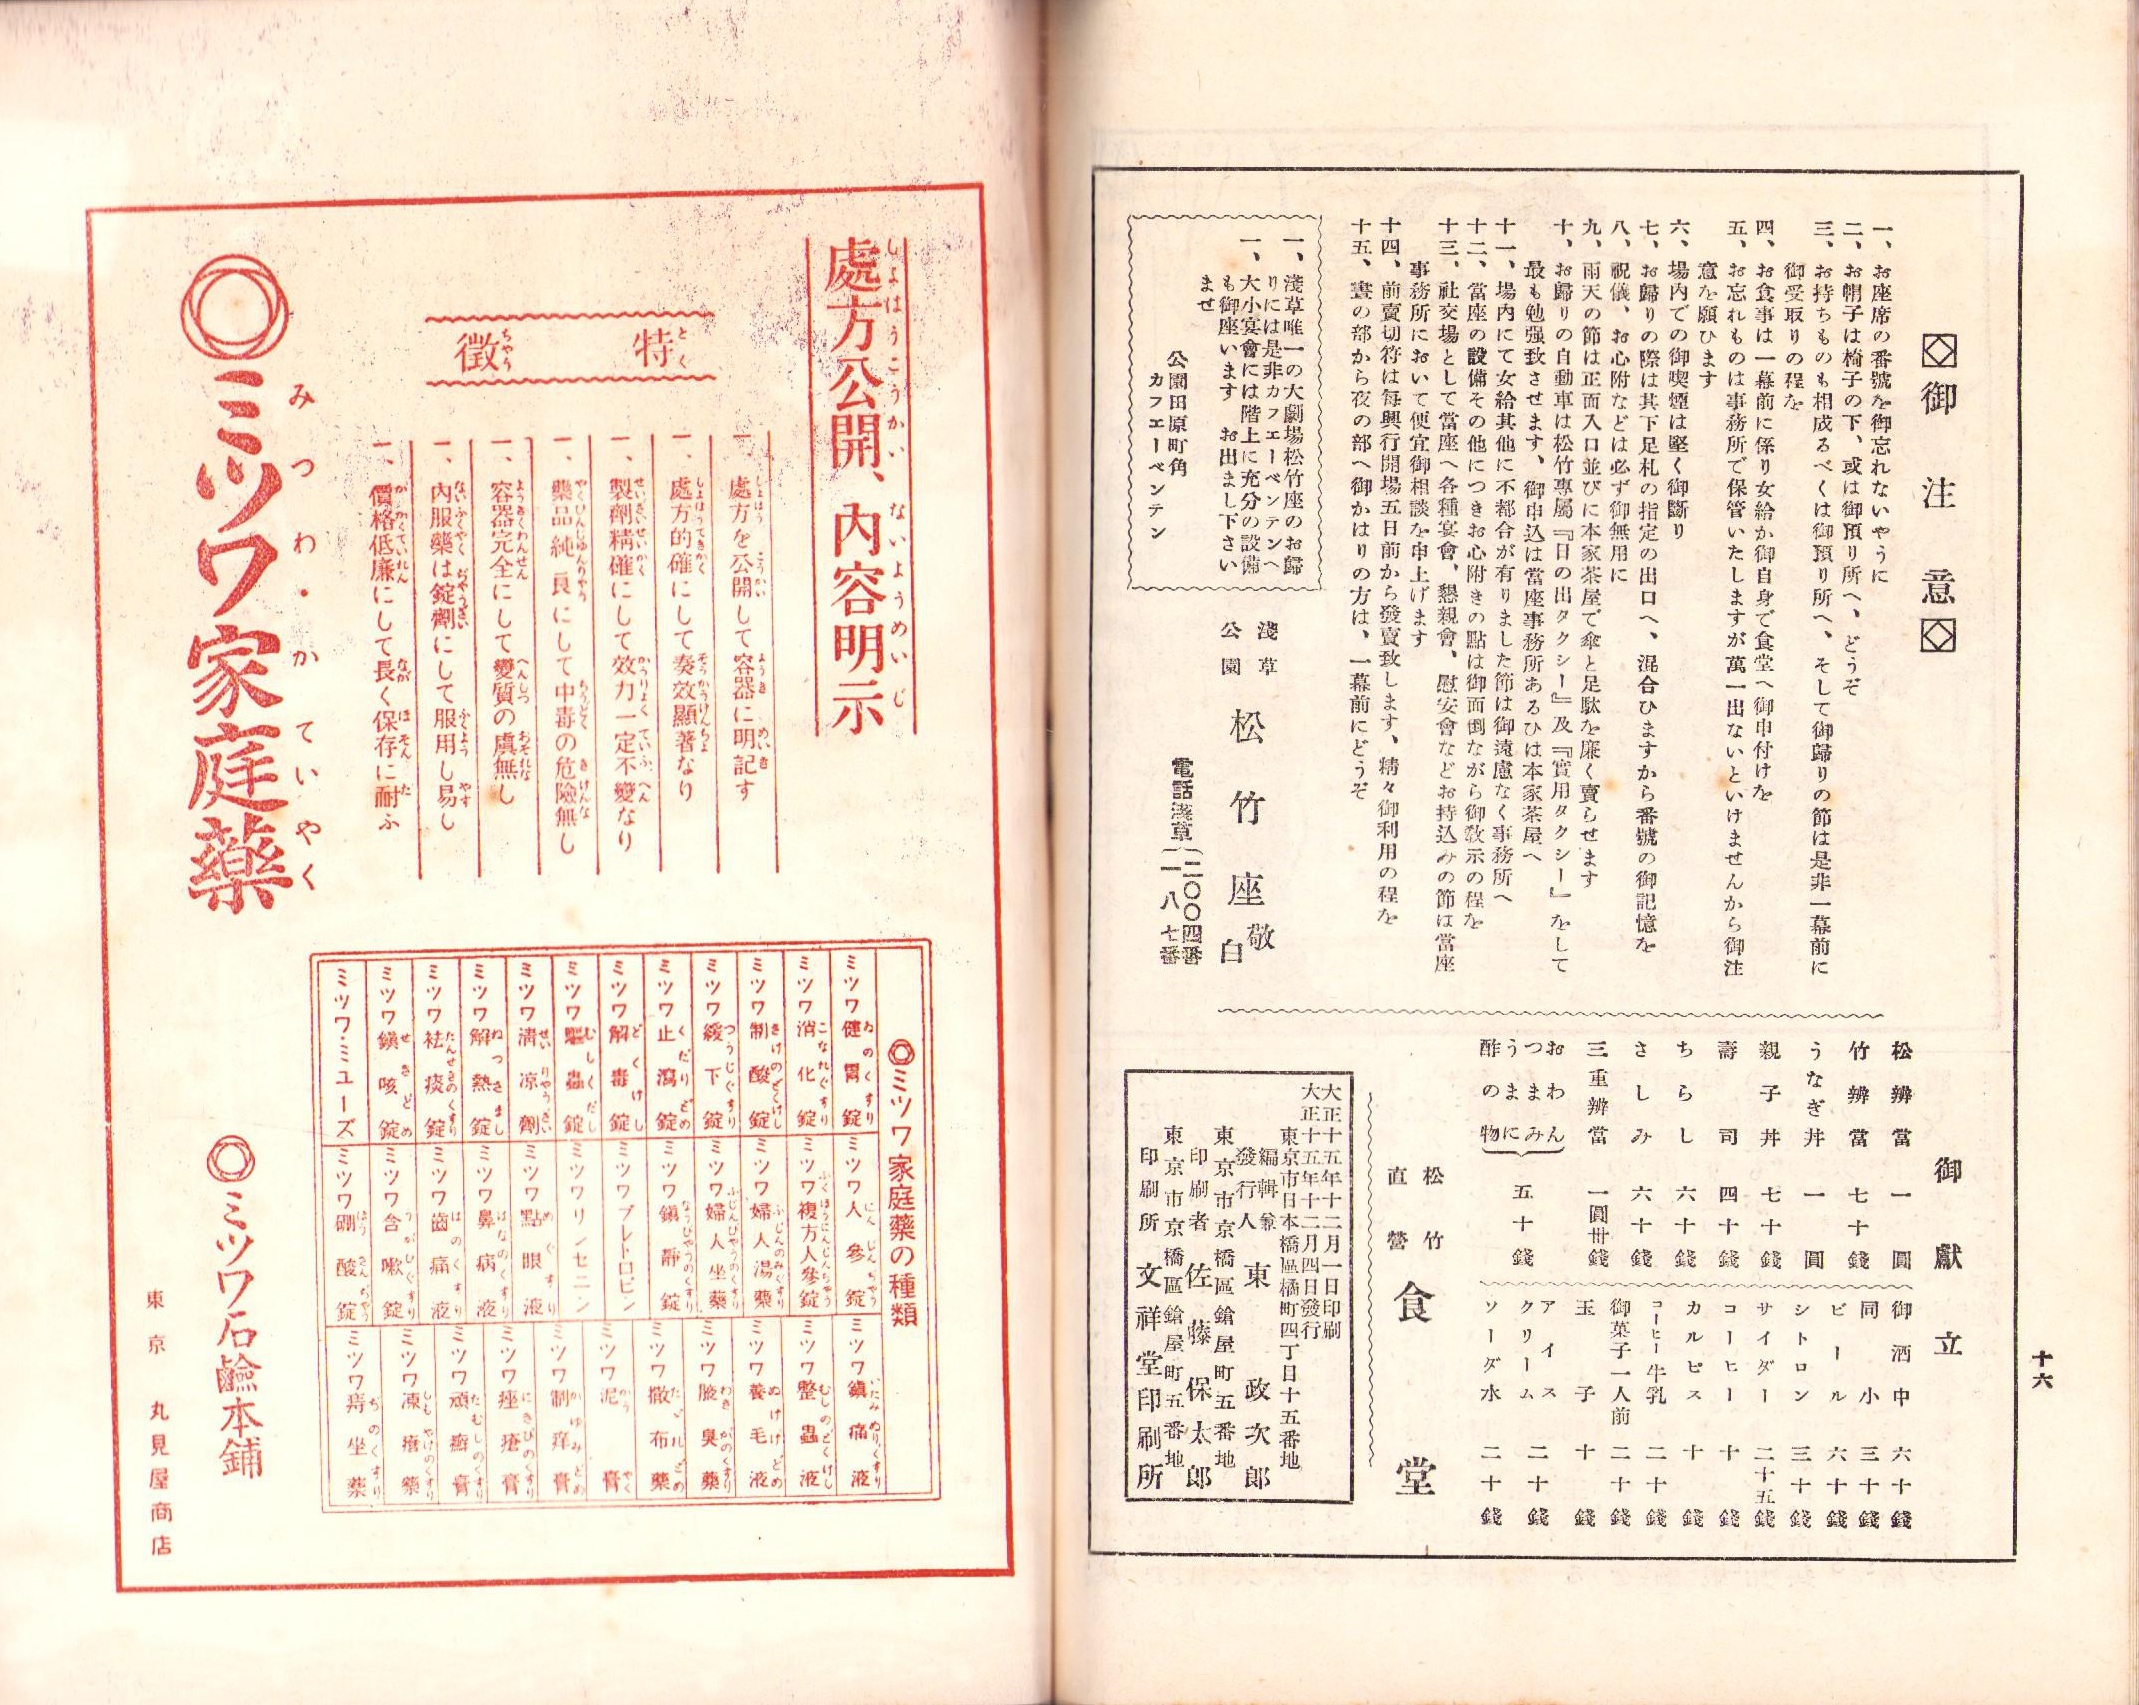 十六
御注意
一、お座席の番號を御忘れないやうに
二、お帽子は椅子の下、或は御預り所へ、どうぞ
三、お持ちものも相成るべくは御預り所へ、そして御歸りの節は是非一幕前に
御受取りの程を
四、お食事は一幕前に係り女給か御自身で食堂へ御申付けを
五、お忘れものは事務所で保管いたしますが萬一出ないといけませんから御注
意を願ひます
六、場内での御喫煙は堅く御斷り
七、お歸りの際は其下足札の指定の出口へ、混合ひますから番號の御記憶を
八、祝儀、お心附などは必ず御無用に
九、雨天の節は正面入口並びに本家茶屋で傘と足駄を廉く賣らせます
十、お歸りの自動車は松竹專屬『日の出タクシー』及『實用タクシー』をして
最も勉强致させます、御申込は當座事務所あるひは本家茶屋へ
十一、場内にて女給其他に不都合が有りました節は御遠慮なく事務所へ
十二、當座の設備その他につきお心附きの點は御面倒ながら御敎示の程を
十三、社交場として當座へ各種宴會、懇親會、慰安會などお持込みの節は當座
事務所において便宜御相談を申上げます
十四、前賣切符は每興行開場五日前から發賣致します、精々御利用の程を
十五、晝の部から夜の部へ御かはりの方は、一幕前にどうぞ
一、淺草唯一の大劇場松竹座のお歸
りには是非カフエーベンテンへ
一、大小宴會には階上に充分の設備
も御座います お出まし下さい
ませ
公園田原町角
カフエーベンテン
淺草
公園
松竹座
敬白
電話淺草
二〇〇四番
一八七番
御獻立
松辨當 一圓
竹辨當 七十錢
うなぎ丼 一圓
親子丼 七十錢
壽司 四十錢
ちらし 六十錢
さしみ 六十錢
三重辨當 一圓卅錢
おわん
つまみ
うまに
酢の物
五十錢
御酒中 六十錢
同小 三十錢
ビール 六十錢
シトロン 三十錢
サイダー 二十五錢
コーヒー 十錢
カルピス 十錢
コーヒー牛乳 二十錢
御菓子一人前 二十錢
玉子 十錢
アイス
クリーム
二十錢
ソーダ水 二十錢
松竹
直營
食堂
大正十五年十二月一日印刷
大正十五年十二月四日發行
東京市日本橋區橘町四丁目十五番地
編輯兼
發行人
東政次郎
東京市京橋區鎗屋町五番地
印刷者 佐藤保太郎
東京市京橋區鎗屋町五番地
印刷所 文祥堂印刷所
處方公開、內容明示
しよはうこうかい、ないようめいじ
特徵
とくちやう
一、處方を公開して容器に明記す
一、處方的確にして奏效顯著なり
一、製劑精確にして效力一定不變なり
一、藥品純良にして中毒の危險無し
一、容器完全にして變質の虞無し
一、內服藥は錠劑にして服用し易し
一、價格低廉にして長く保存に耐ふ
ミツワ家庭藥
みつわ・かていやく
ミツワ家庭藥の種類
ミツワ健胃錠
ミツワ消化錠
ミツワ制酸錠
ミツワ緩下錠
ミツワ止瀉錠
ミツワ解毒錠
ミツワ驅蟲錠
ミツワ淸凉劑
ミツワ解熱錠
ミツワ袪痰錠
ミツワ鎭咳錠
ミツワ・ミユーズ
ミツワ人參錠
ミツワ複方人參錠
ミツワ婦人湯藥
ミツワ婦人坐藥
ミツワ鎭靜錠
ミツワプレトロピン
ミツワリンセニン
ミツワ點眼液
ミツワ鼻病液
ミツワ齒痛液
ミツワ含嗽錠
ミツワ硼酸錠
ミツワ鎭痛液
ミツワ整蟲液
ミツワ養毛液
ミツワ腋臭藥
ミツワ撒布藥
ミツワ泥膏
ミツワ制痒膏
ミツワ痤瘡膏
ミツワ頑癬膏
ミツワ凍瘡藥
ミツワ痔坐藥
ミツワ石鹼本鋪
東京 丸見屋商店